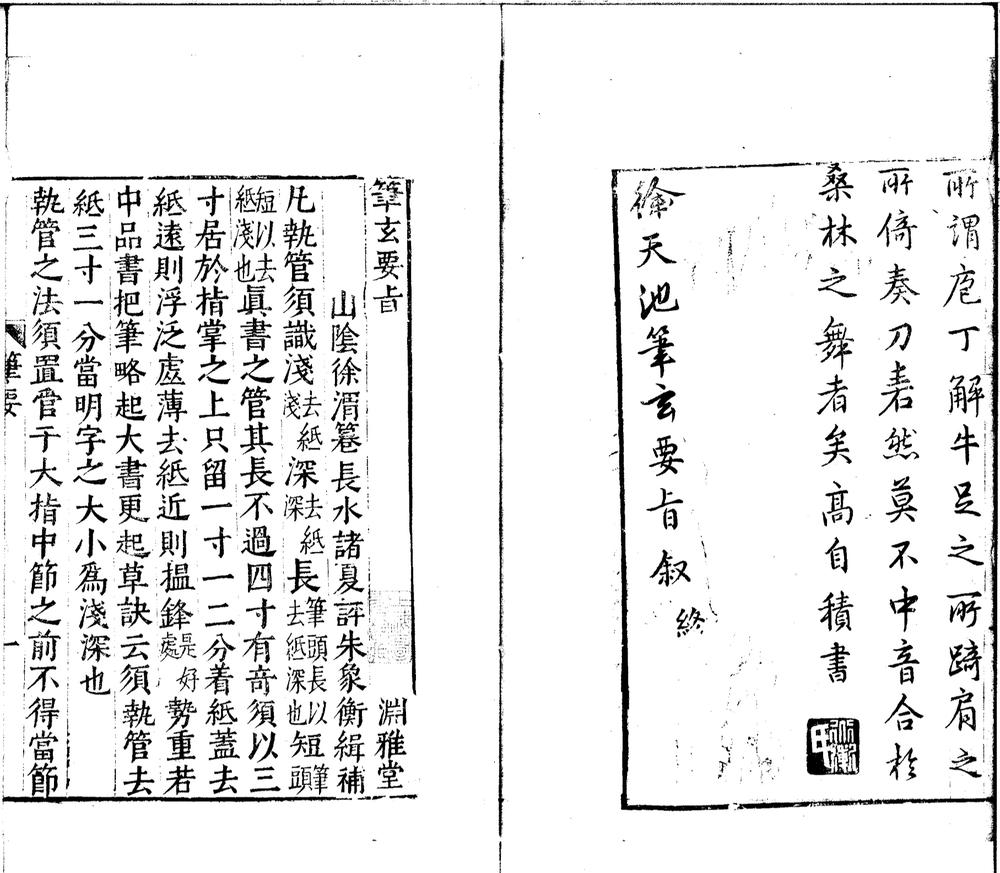 所謂庖丁解牛足之所踦肩之
所倚奏刀砉然莫不中音合於
桑林之舞者矣高自積書
徐天池筆玄要旨叙終
筆玄要旨 淵雅堂
山陰徐渭篹長水諸夏評朱象衡緝補
凡執管須識淺淺去紙深深去紙長筆頭長以去紙深也短筆頭
短以去紙淺也眞書之管其長不過四寸有奇須以三
寸居於㨖掌之上只留一寸一二分着紙蓋去
紙遠則浮泛虛薄去紙近則揾鋒是好處勢重若
中品書把筆略起大書更起草訣云須執管去
紙三寸一分當明字之大小爲淺深也
執管之法須置管于大指中節之前不得當節
筆要
一